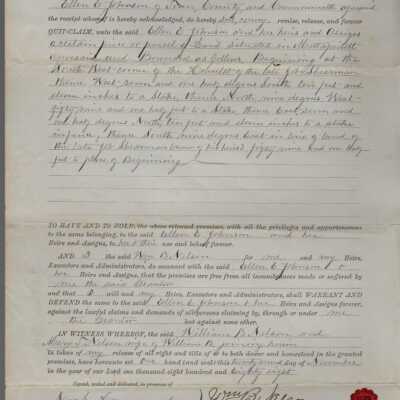 Ellen E Johnson of said County and Commonwealth aforesaid
the receipt whereof is hereby acknowledged, do hereby convey, remise, release, and forever
QUIT-CLAIM, unto the said Ellen E Johnson and her heirs and Assigns
a certain piece or parcel of Land situated in
and Bounded as follows Beginning at the
North East corner of the of the late Jos Sherman
thence West seven and one half degrees South ten feet and
eleven inches to a Stake thence North nine degrees West
fifty nine and one half feet to a Stake thence East seven and
one half degrees North ten feet and eleven inches to a stake
in fence, thence South nine degrees East in line of land of
the late Jos Sherman fifty nine and one half
feet to place of Beginning
TO HAVE AND TO HOLD, the above released premises, with all the privileges and appurtenances
to the same belonging, to the said Ellen E Johnson and her
Heirs and Assigns, to her & their use and behoof forever.
AND I the said Wm B Nelson for me and my Heirs,
Executors and Administrators, do covenant with the said Ellen E Johnson &
her Heirs and Assigns, that the premises are free from all incumbrances made or suffered by
me the said Grantor
and that I will and my Heirs, Executors and Administrators, shall WARRANT AND
DEFEND the same to the said Ellen E Johnson & her Heirs and Assigns forever,
against the lawful claims and demands of all persons claiming by, through or under me
the Grantor but against none other.
IN WITNESS WHEREOF, the said William B Nelson and
Mary Nelson wife of William B joining herein
in token of my release of all right and title of or to both dower and homestead in the granted
premises, have hereunto set our hand and seal this day of November
in the year of our Lord one thousand eight hundred and Eighty eight
Signed, sealed and delivered, in presence of
Wm B Nelson